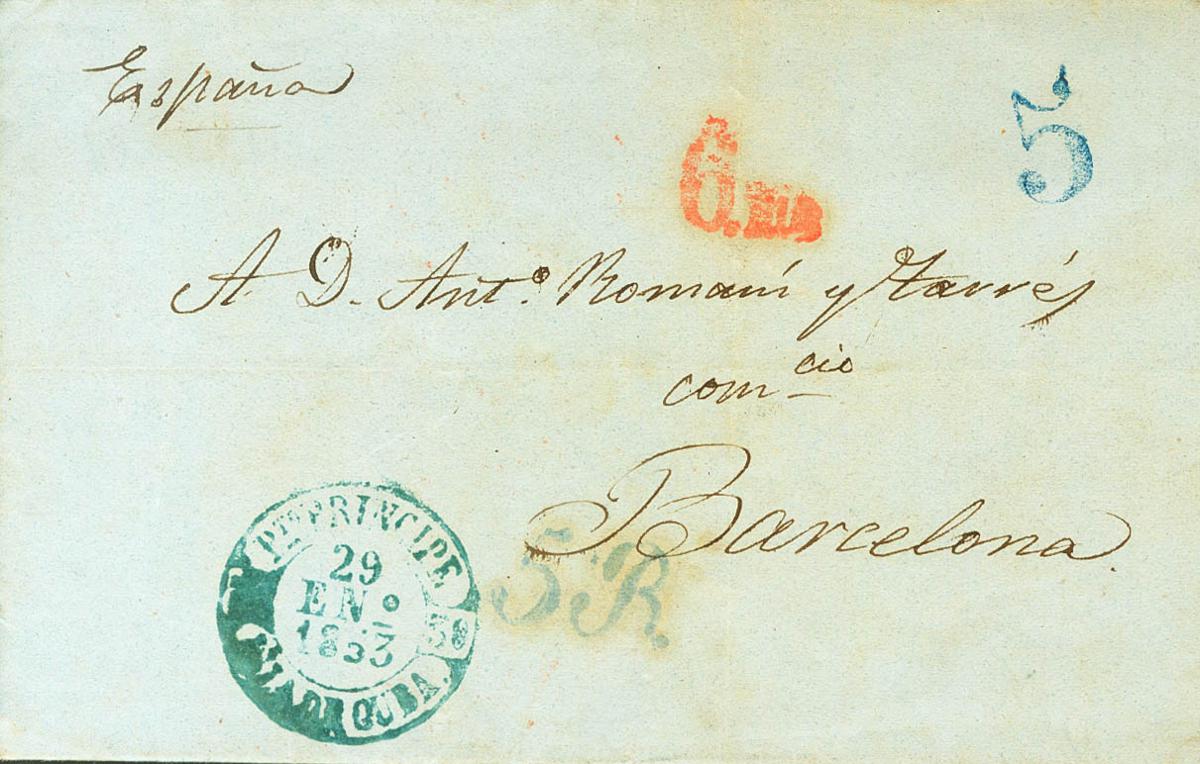 España
5
6. Rs
A. D. Ant.º Romaní y Tarrés
com cio
Barcelona.
5 R.
PTO PRINCIPE
29
EN.º
1853
38
YSLA DE CUBA.